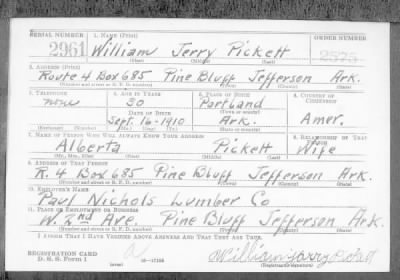 SERIAL NUMBER 1. NAME (Print) ORDER NUMBER
2961 William Jerry Pickett 2575
(First) (Middle) (Last)
2. ADDRESS (Print)
Route 4 Box 685 Pine Bluff Jefferson Ark.
(Number and street or R. F. D. number) (Town) (County) (State)
3. TELEPHONE 4. AGE IN YEARS 5. PLACE OF BIRTH 6. COUNTRY OF CITIZENSHIP
none 30 Portland
DATE OF BIRTH (Town or county)
Sept. 16-1910 Ark. Amer.
(Exchange) (Number) (Mo.) (Day) (Yr.) (State or country)
7. NAME OF PERSON WHO WILL ALWAYS KNOW YOUR ADDRESS 8. RELATIONSHIP OF THAT PERSON
Alberta Pickett Wife
(Mr., Mrs., Miss) (First) (Middle) (Last)
9. ADDRESS OF THAT PERSON
R. 4 Box 685 Pine Bluff Jefferson Ark.
(Number and street or R. F. D. number) (Town) (County) (State)
10. EMPLOYER'S NAME
Paul Nichols Lumber Co
11. PLACE OF EMPLOYMENT OR BUSINESS
W. 2nd Ave. Pine Bluff Jefferson Ark.
(Number and street or R. F. D. number) (Town) (County) (State)
I AFFIRM THAT I HAVE VERIFIED ABOVE ANSWERS AND THAT THEY ARE TRUE.
REGISTRATION CARD
D. S. S. Form 1 (over) 16-17105 William Jerry
(Registrant's signature)